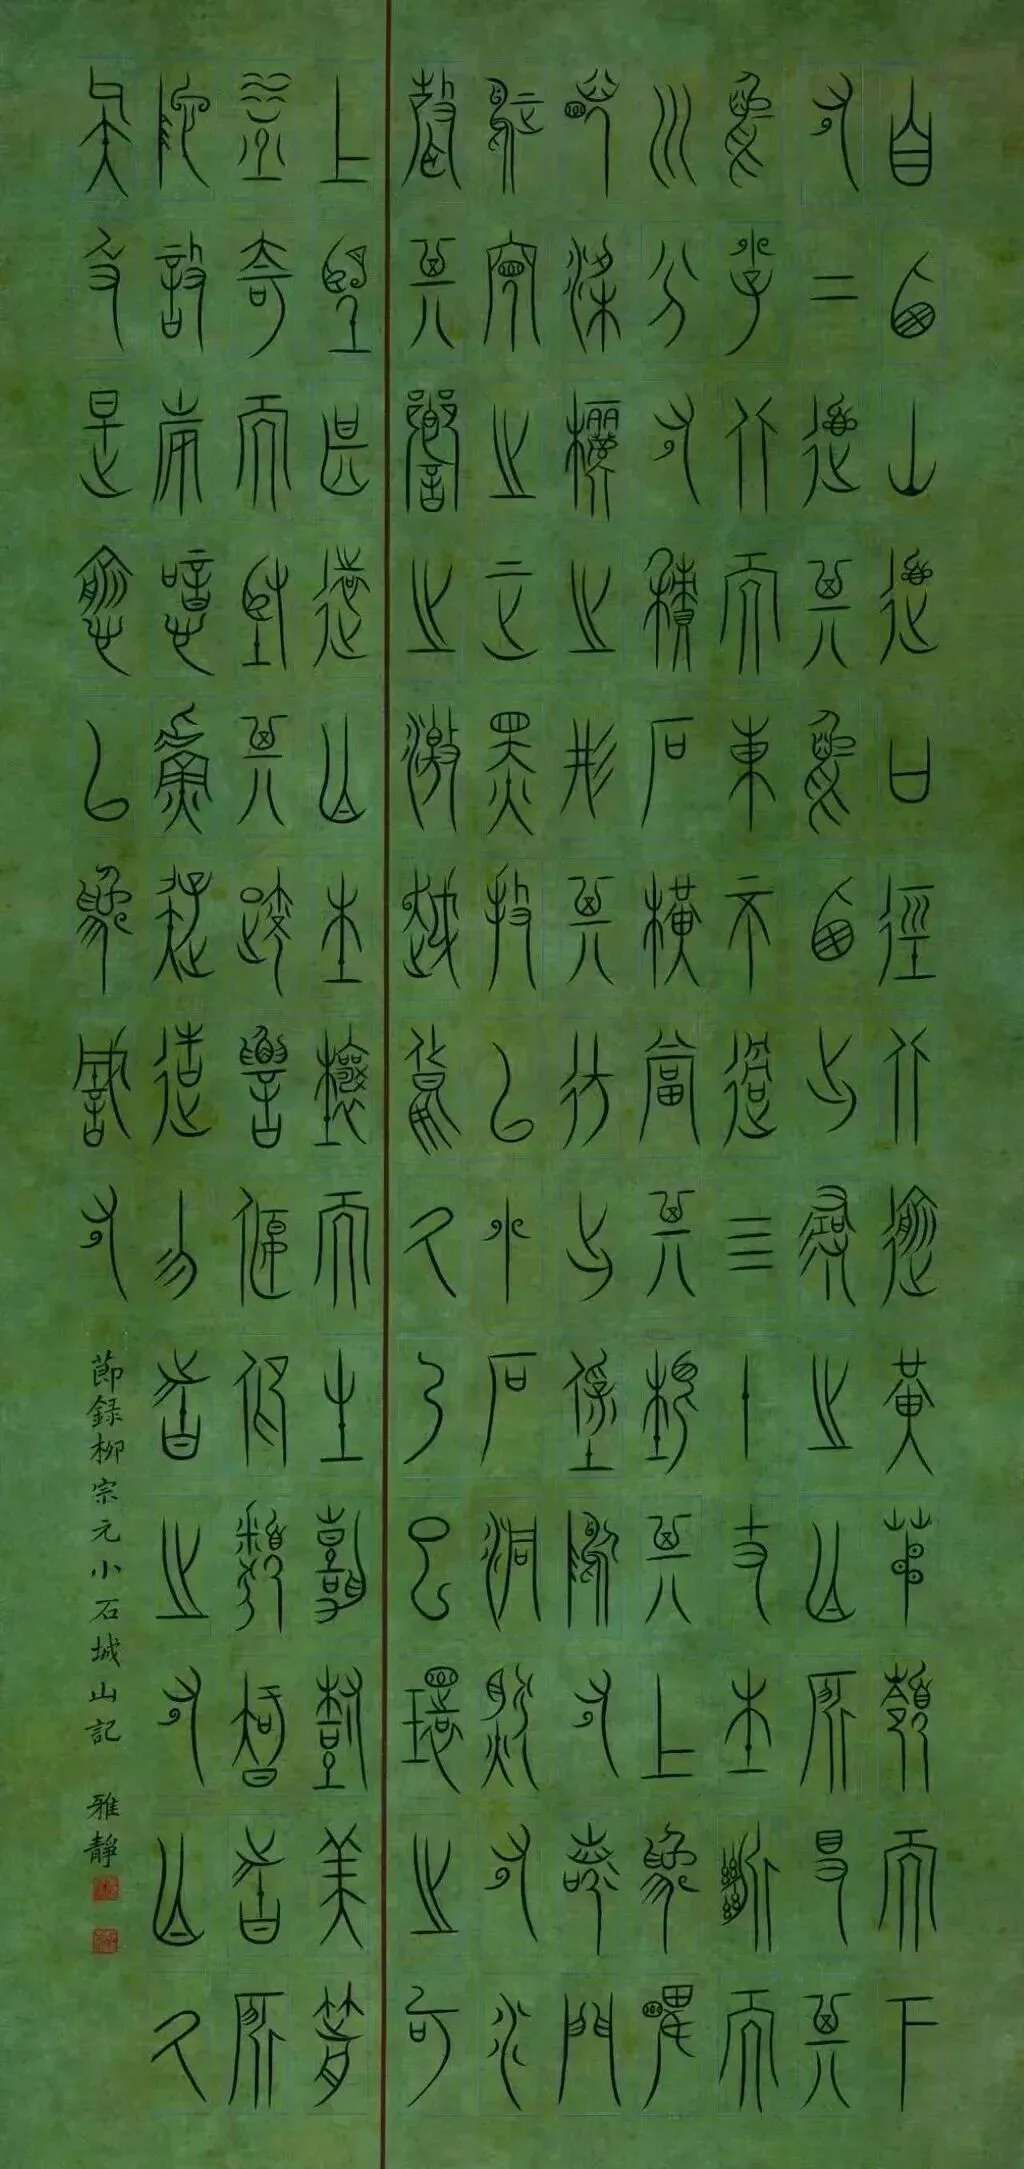 自西山道口徑北逾黃茅嶺而下
有二道其一西出尋之無所得其
一少北而東不過四十丈土斷而
川分有積石橫當其垠其上為睥
睨梁欐之形其旁出堡塢有若門
焉窺之正黑投以小石洞然有水
聲其響之激越良久乃已環之可
上望甚遠無土壤而生嘉樹美箭
益奇而堅其疏數偃仰類智者所
施設也噫吾疑造物者之有無久
矣及是愈以為誠有
節錄柳宗元小石城山記 雅靜